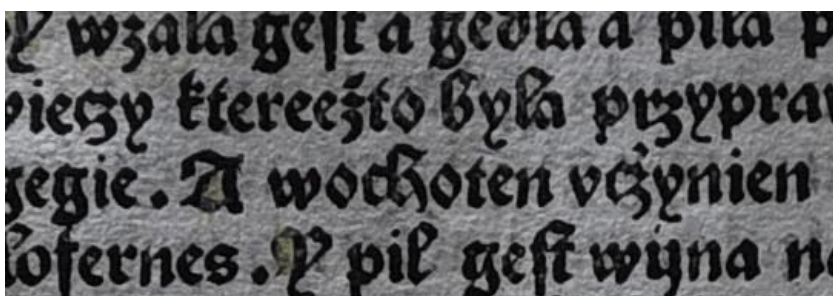 Y wzala gest a gedla a pila
ktereežto byla przyprau
gegie. A wochoten vczynien
lofernes. Y pil gest wijna